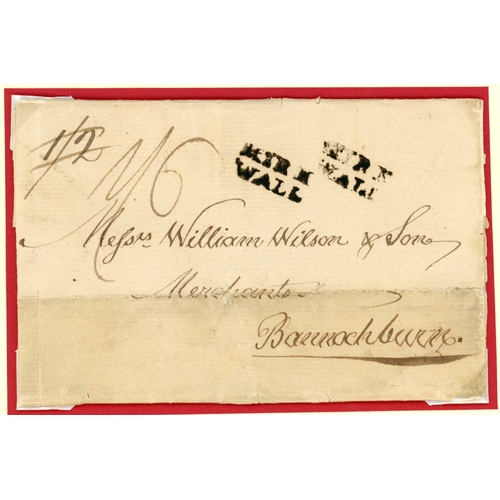 1/2
1/6
KIRK
WALL
KIRK
WALL
Messrs William Wilson & Son
Merchants
Bannockburn.